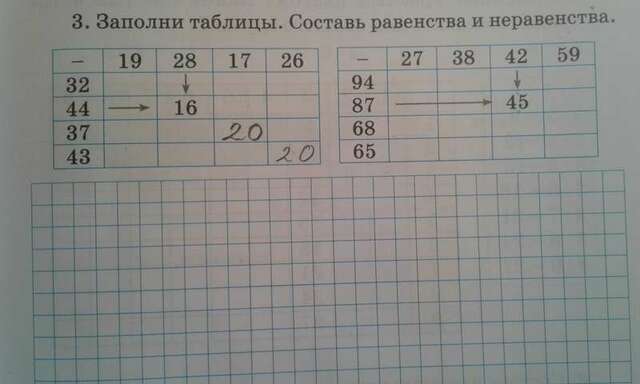 3. Заполни таблицы. Составь равенства и неравенства.
– 19 28 17 26
32
44 16
37 20
43 20
– 27 38 42 59
94
87 45
68
65